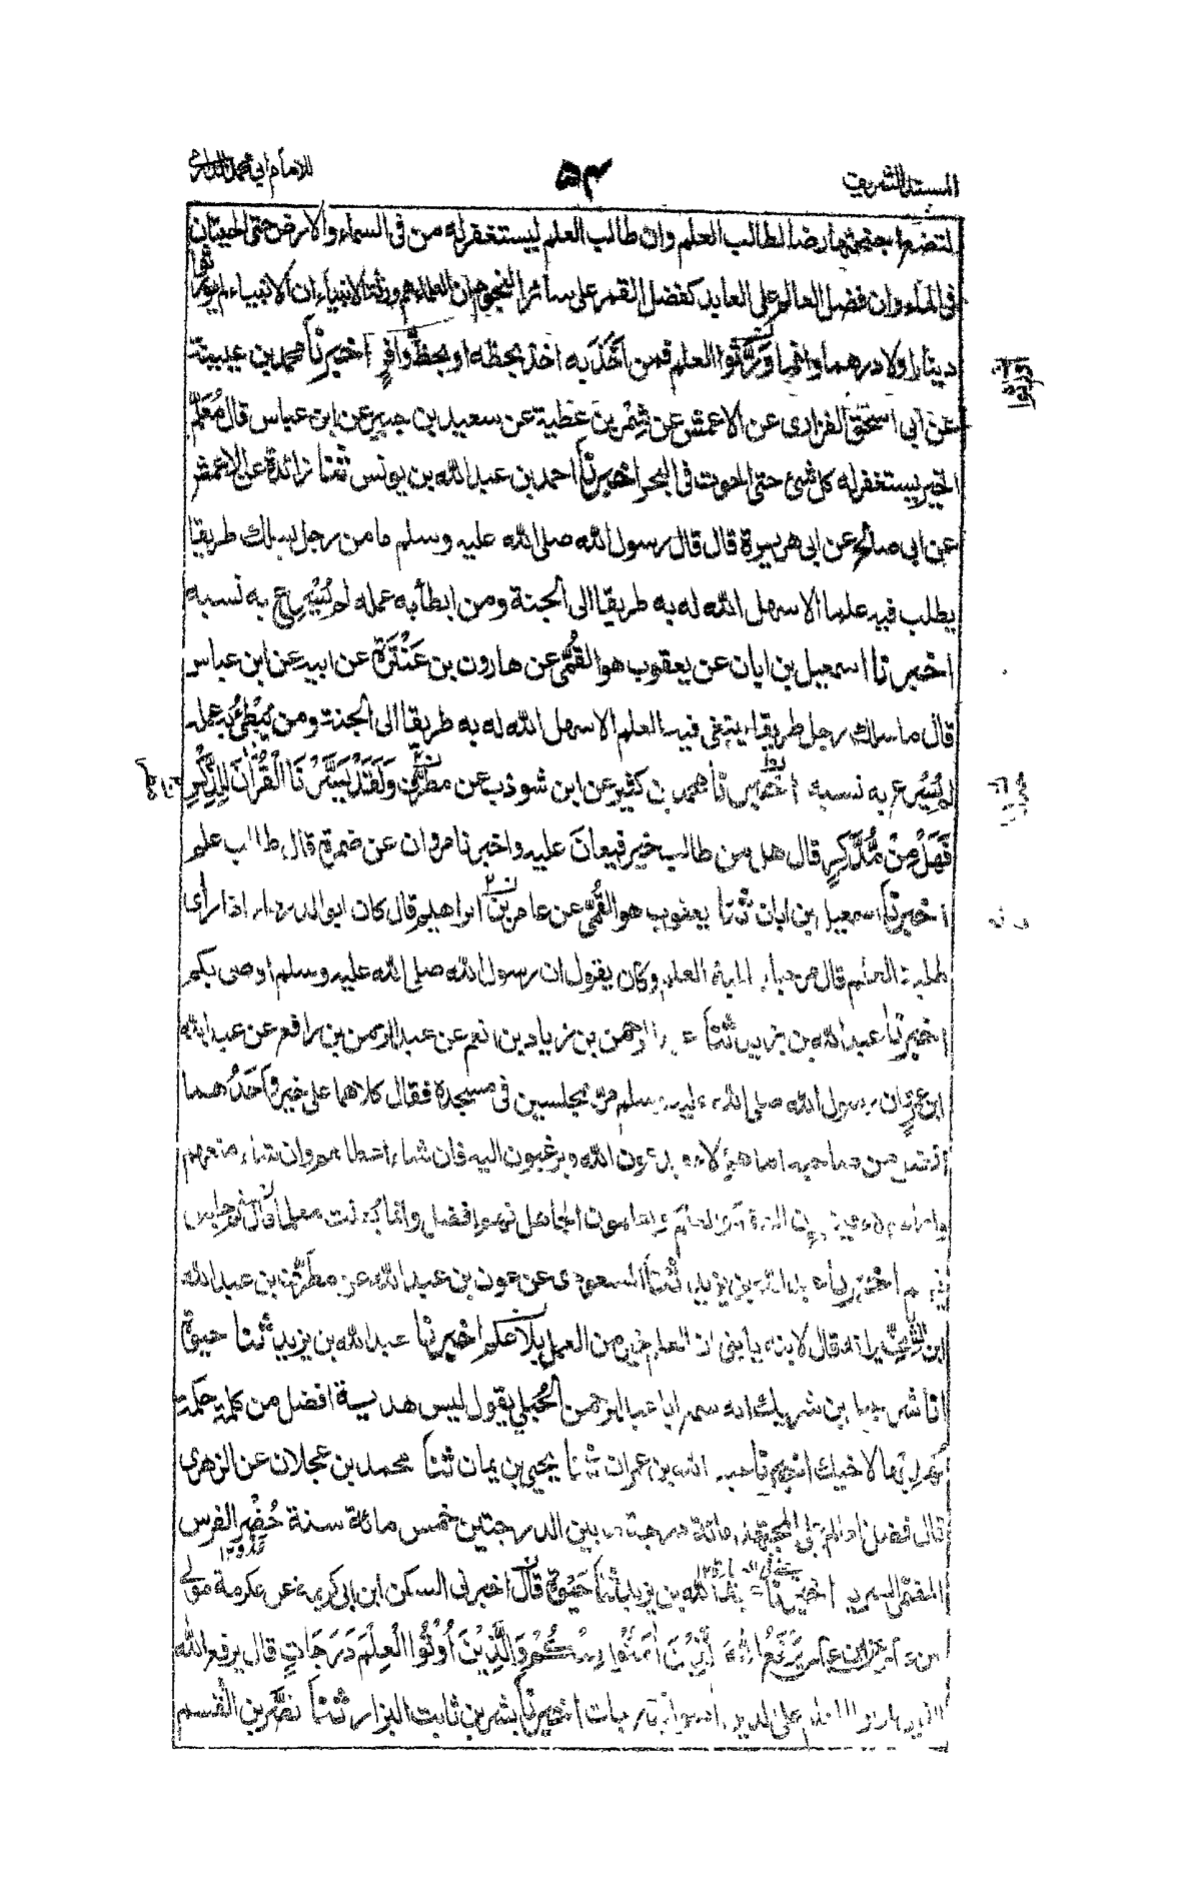 المسند الشريف
٥٣
للامام ابي محمد الدارمي
لتضع اجنحتها رضا لطالب العلم وان طالب العلم ليستغفر له من فى السماء والارض حتى الحيتان
فى الماء وان فضل العالم على العابد كفضل القمر على سائر النجوم ان العلماء هم ورثة الانبياء ان الانبياء لم يورثوا
دينارا ولا درهما وانما وَرَّثوا العلم فمن اَخَذَ به اخذ بحظه او بحظٍّ وافرٍ اخبرنا محمد بن عيينة
عن ابى اسحق الفزارى عن الاعمش عن شِمْر بن عَطية عن سعيد بن جبير عن ابن عباس قال مُعَلِّم
الخير يستغفر له كل شئ حتى الحوت فى البحر اخبرنا احمد بن عبد الله بن يونس ثنا زائدة عن الاعمش
عن ابى صالح عن ابى هريرة قال قال رسول الله صلى الله عليه وسلم ما من رجل يسلك طريقا
يطلب فيه علما الا سهل الله له به طريقا الى الجنة ومن ابطأ به عمله لم يُسْرِع به نسبه
اخبرنا اسمعيل بن ابان عن يعقوب هو القُمّى عن هارون بن عَنْتَرَة عن ابيه عن ابن عباس
قال ما سلك رجل طريقا يبتغى فيه العلم الا سهل الله له به طريقا الى الجنة ومن يُبْطِئ به عمله
لم يُسْرِع به نسبه اخبرنا محمد بن كثير عن ابن شوذب عن مطر وَلَقَدْ يَسَّرْنَا الْقُرْاٰنَ لِلذِّكْرِ
فَهَلْ مِنْ مُّدَّكِرٍ قال هل من طالب خير فيعانَ عليه واخبرنا مروان عن ضمرة قال طالب علم
اخبرنا اسمعيل بن ابان ثنا يعقوب هو القُمّى عن عامر بن ابراهيم قال كان ابو الدرداء اذا رأى
طلبة العلم قال مرحبا بطلبة العلم وكان يقول ان رسول الله صلى الله عليه وسلم اوصى بكم
اخبرنا عبد الله بن يزيد ثنا عبد الرحمن بن زياد بن انعم عن عبد الرحمن بن رافع عن عبد الله
ابن عمرو ان رسول الله صلى الله عليه وسلم مرّ بمجلسين فى مسجده فقال كلاهما على خير وَاَحَدُهما
افضل من صاحبه اما هؤلاء فيدعون الله ويرغبون اليه فان شاء اعطاهم وان شاء منعهم
واما هؤلاء فيتعلمون الفقه والعلم ويعلمون الجاهل فهم افضل وانما بُعثت معلما قال ثم جلس
فيهم اخبرنا عبد الله بن يزيد ثنا المسعودى عن عون بن عبد الله عن مطرّف بن عبد الله
ابن الشِّخِّير انه قال لابنه يا بنى ان العلم خير من العمل بلا علم اخبرنا عبد الله بن يزيد ثنا حيوة
انا شرحبيل بن شريك انه سمع ابا عبد الرحمن الحُبُلى يقول ليس هدية افضل من كلمة حكمة
تهديها لاخيك اخبرنا عبد الله بن عمران ثنا يحيى بن يمان ثنا محمد بن عجلان عن الزهرى
قال فضل العالم على المجتهد مائة درجة ما بين الدرجتين خمس مائة سنة حُضْر الفرس
المضمّر السريع اخبرنا عبد الله بن يزيد ثنا حَيْوة قال اخبرنى السكن ابن ابى كريمة عن عكرمة مولى
ابن عباس عن ابن عباس يَرْفَعُ اللهُ الَّذِيْنَ اٰمَنُوْا مِنْكُمْ وَالَّذِيْنَ اُوْتُوا الْعِلْمَ دَرَجَاتٍ قال يرفع الله
الذين اوتوا العلم على الذين اٰمنوا درجات اخبرنا بشر بن ثابت البزار ثنا نصر بن القسم